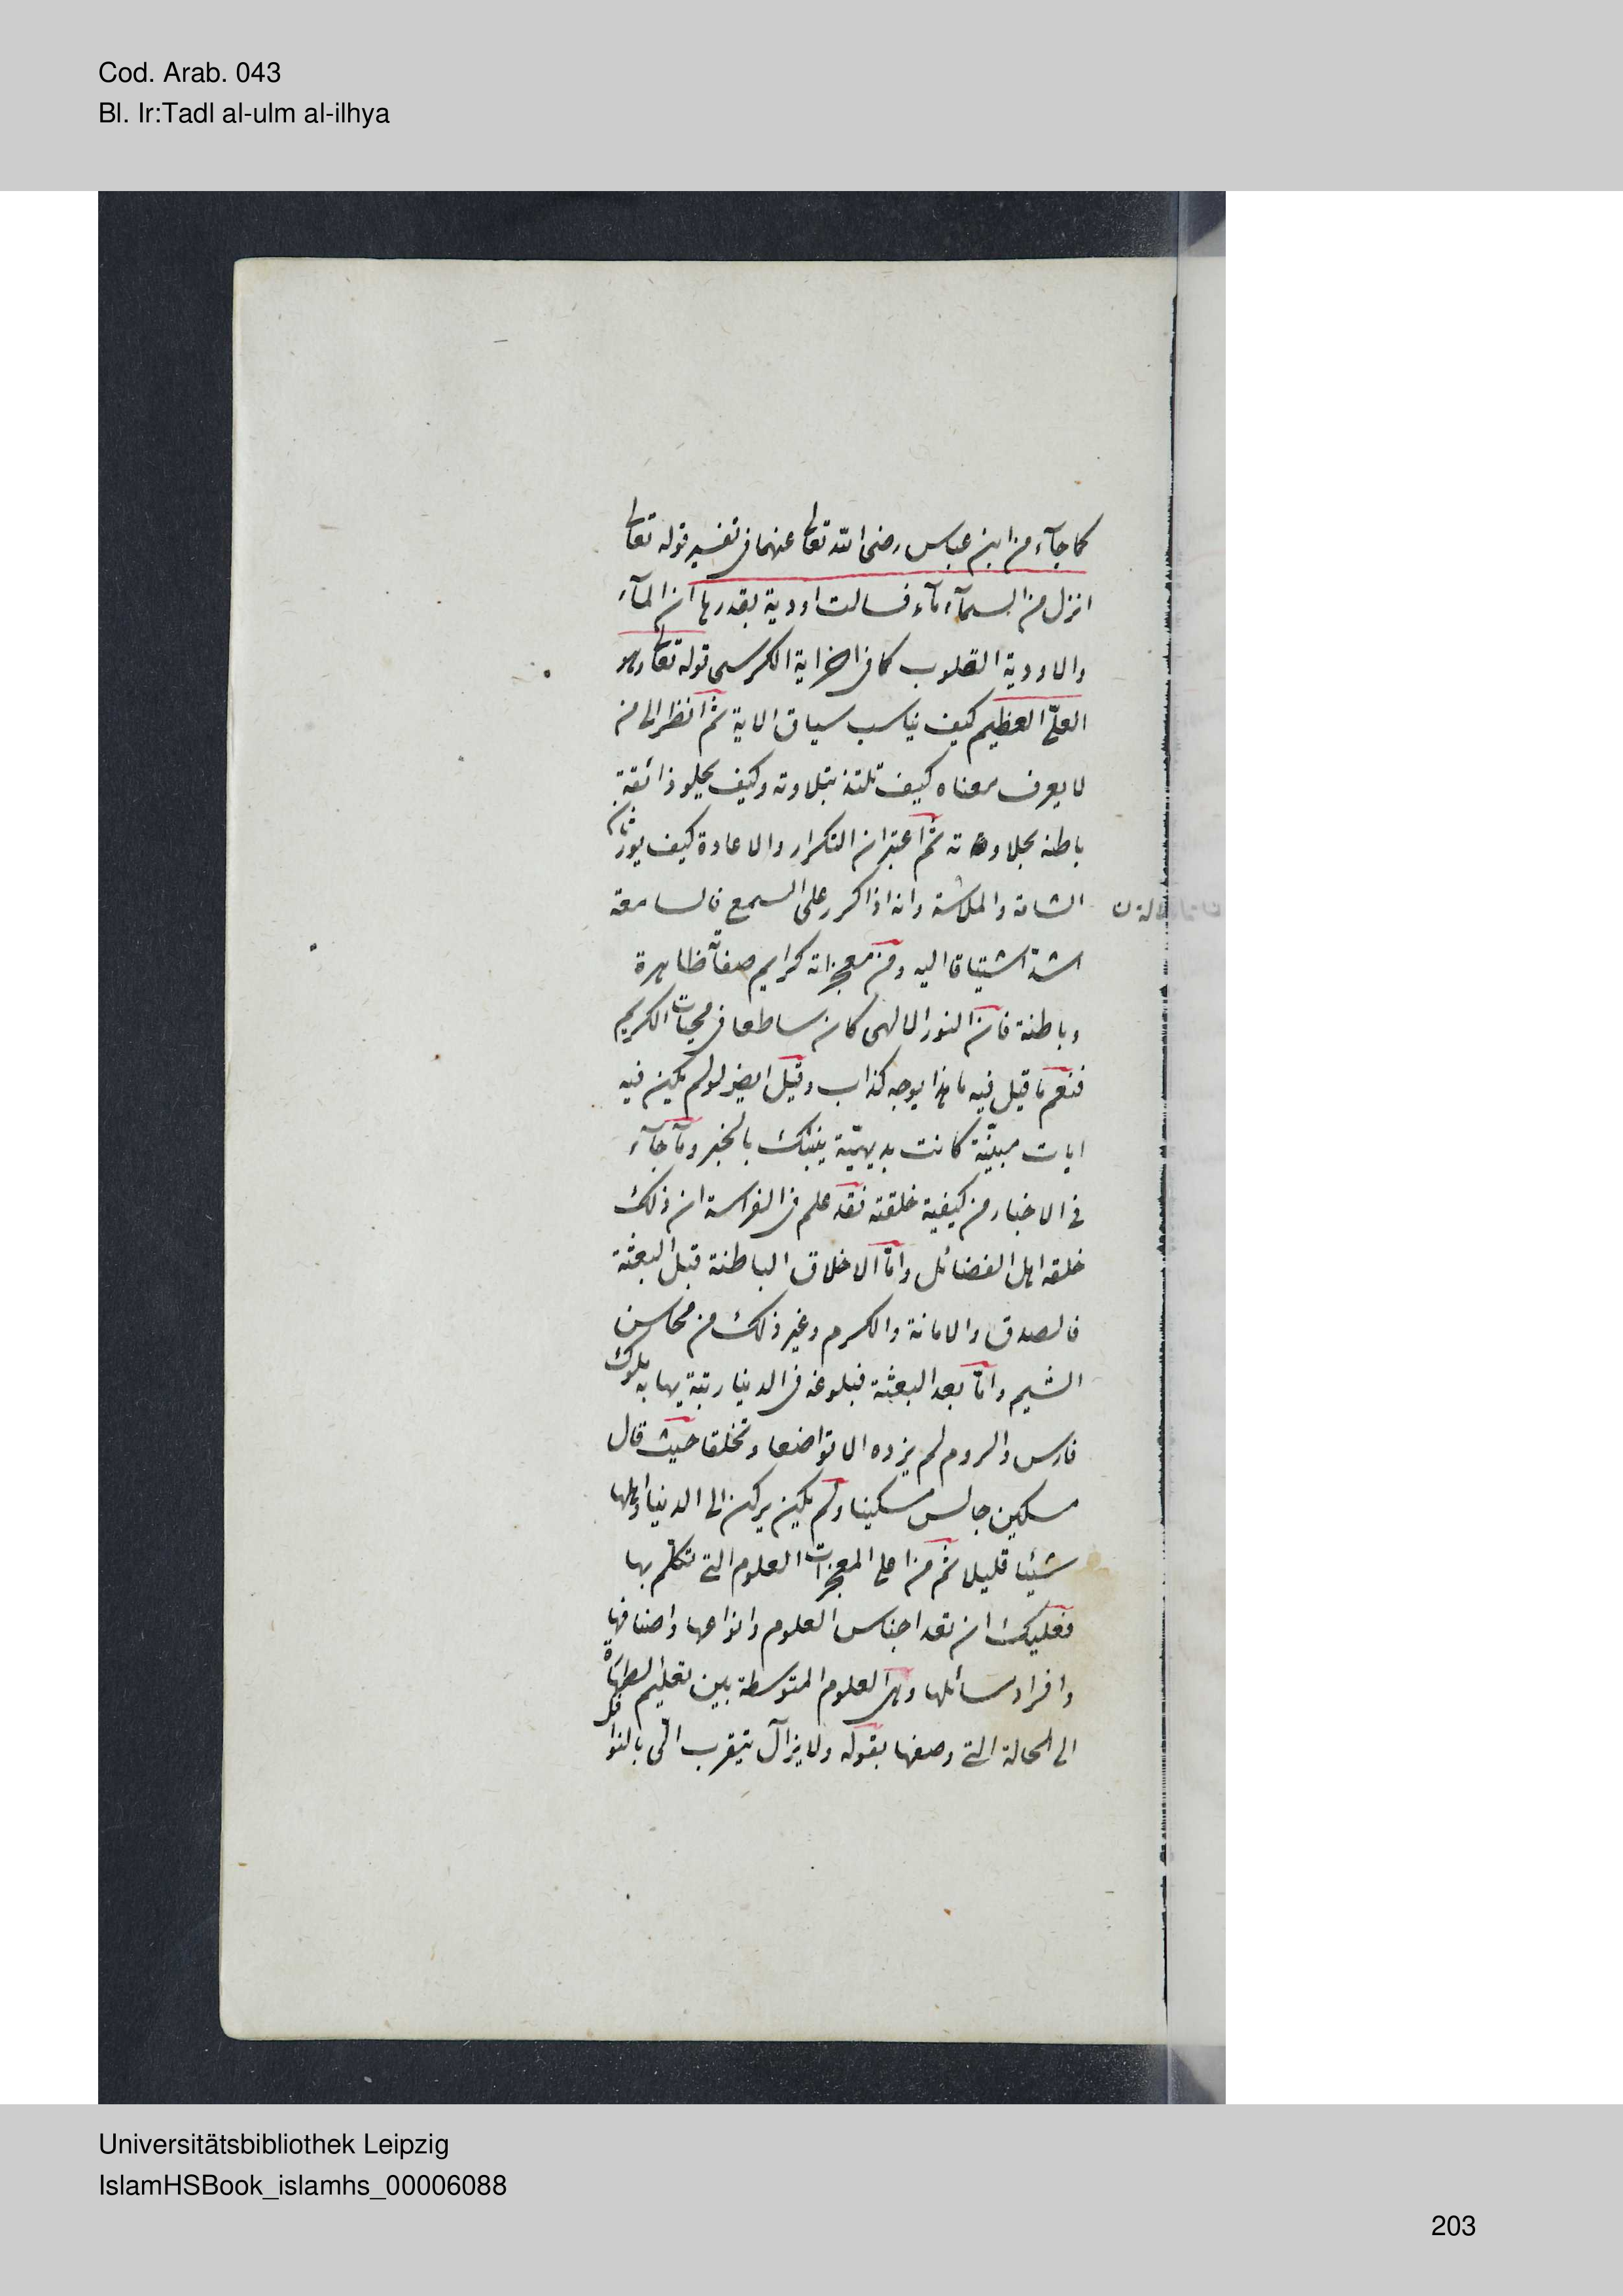 Cod. Arab. 043
Bl. Ir:Tadl al-ulm al-ilhya
كما جآء من ابن عباس رضى الله تعالى عنهما فى تفسير قوله تعالى
انزل من السمآء مآء فسالت اودية بقدرها ان المآء
والاودية القلوب كما فى اخر اية الكرسى قوله تعالى وهو
العلىّ العظيم كيف يناسب سياق الاية ثم انظر الى من
لا يعرف معناه كيف تلتذ بتلاوته وكيف يحلو ذائقة
باطنه بحلاوته ثم اعتبر ان التكرار والاعادة كيف يورثان
السٔامة والملاسٔة وانه اذا كرر على السمع فالسامعة
اشدّ اشتياقا اليه ومن معجزاته كرايم صفاته ظاهرة
وباطنة فان النور الالهى كان ساطعا فى محيات الكريم
فنعم ما قيل فيه ما هذا بوجه كذاب وقيل ايضا لو لم يكن فيه
ايات مبيّنة كانت بديهيّة ينبئك بالخبر وما جآء
فى الاخبار من كيفية خلقته فقد علم فى الفراسة ان ذلك
خلقه اهل الفضائل وامّا الاخلاق الباطنة قبل البعثة
فالصدق والامانة والكرم وغير ذلك من محاسن
الشيم وامّا بعد البعثة فبلوغه فى الدنيا رتبة يهابه ملوك
فارس والروم لم يزده الا تواضعا وتخلقا حيث قال
مسكين جالس مسكينا ولم يكن يركن الى الدنيا واهلها
شيئا قليلا ثم من اعلى المعجزات العلوم التى تكلّم بها
فعليك ان تعد اجناس العلوم وانواعها واصنافها
وافراد مسائلها وهى العلوم المتوسطة بين تعليم الطهارة
الى الحالة التى وصفها بقوله ولا يزال يتقرب الىّ بالنوافل
Universitätsbibliothek Leipzig
IslamHSBook_islamhs_00006088
203